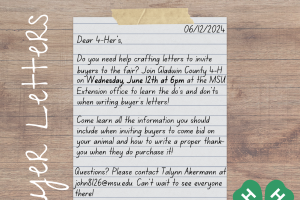 06/12/2024
Dear 4-Her's,
Do you need help crafting letters to invite
buyers to the fair? Join Gladwin County 4-H
on Wednesday, June 12th at 6pm at the MSU
Extension office to learn the do's and don'ts
when writing buyer's letters!
Come learn all the information you should
include when inviting buyers to come bid on
your animal and how to write a proper thank-
you when they do purchase it!
Questions? Please contact Talynn Ackermann at
john8126@msu.edu. Can't wait to see everyone
there!
yer Letters
H
H